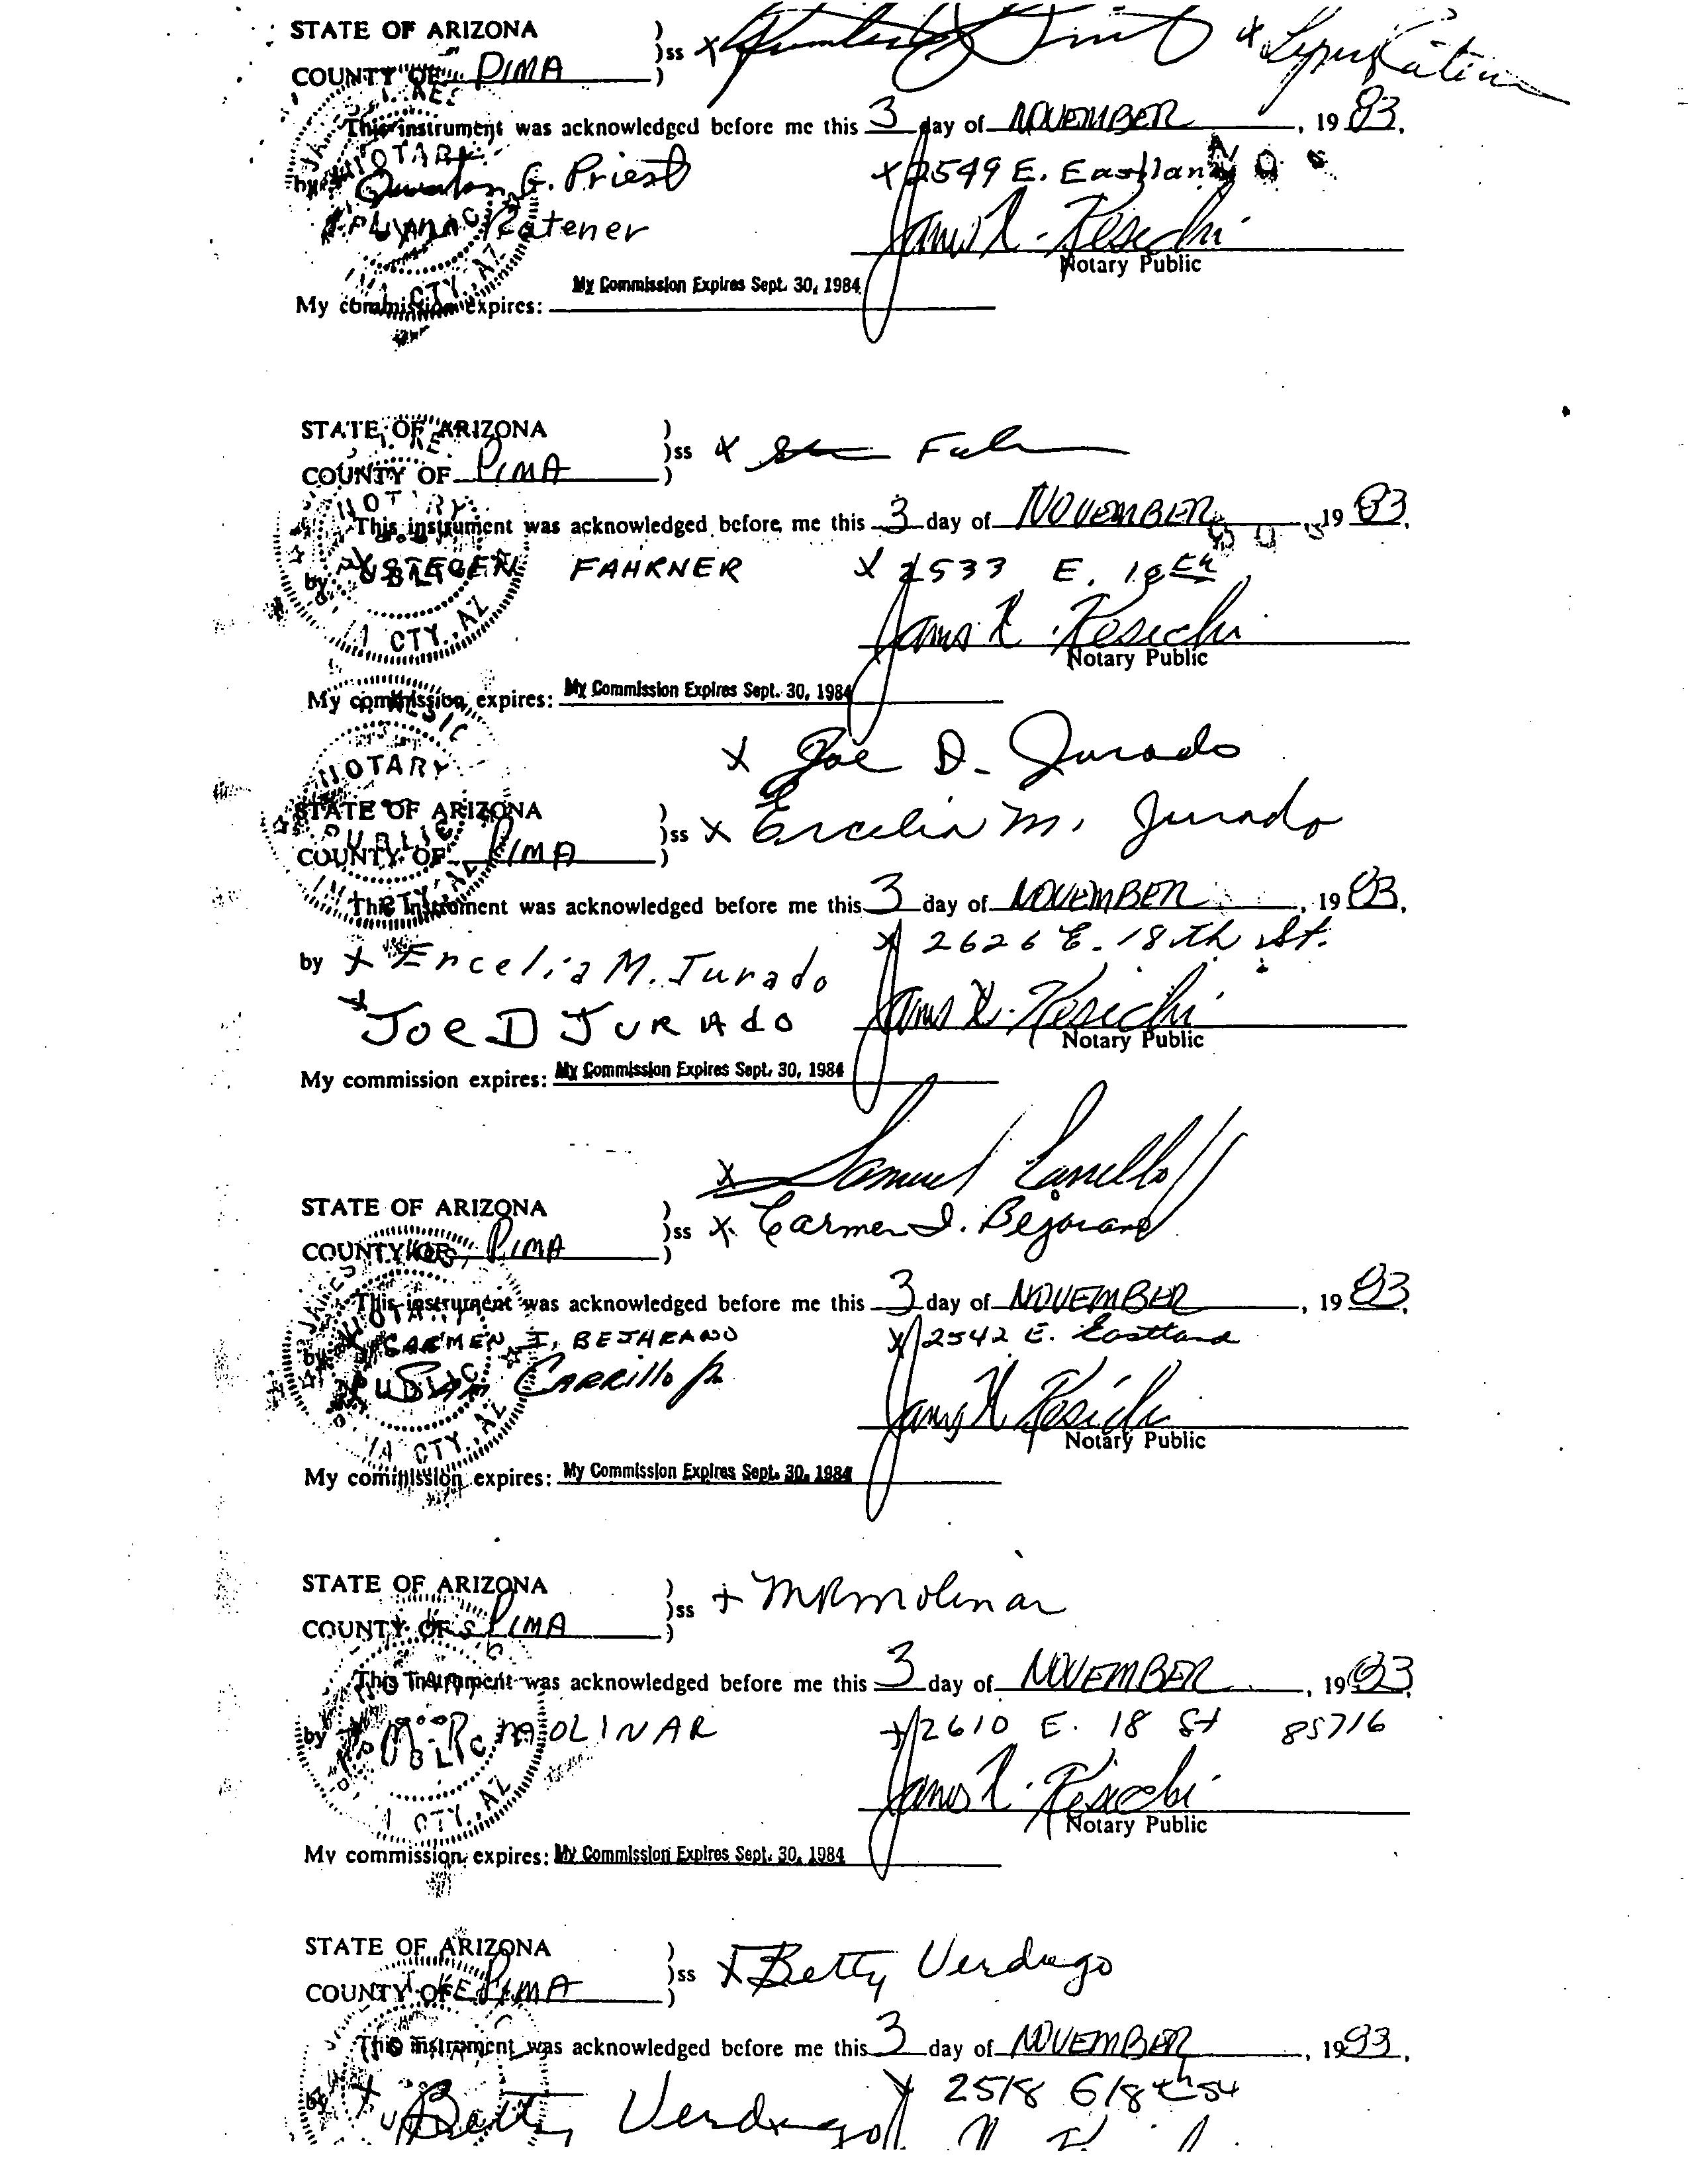 STATE OF ARIZONA
)ss x
COUNTY OF PIMA
This instrument was acknowledged before me this 3 day of NOVEMBER, 1983.
G. Priest x 2549 E. Eastland
Ratener
Notary Public
My commission expires: My Commission Expires Sept. 30, 1984
STATE OF ARIZONA
)ss x
COUNTY OF PIMA
This instrument was acknowledged before me this 3 day of NOVEMBER, 1983.
by x FAHRNER x 2533 E. 18th
Notary Public
My commission expires: My Commission Expires Sept. 30, 1984
x Joe D. Jurado
STATE OF ARIZONA
)ss x Ercelia M. Jurado
COUNTY OF PIMA
This Instrument was acknowledged before me this 3 day of NOVEMBER, 1983.
x 2626 E. 18th St.
by x Ercelia M. Jurado
x JOE D JURADO
Notary Public
My commission expires: My Commission Expires Sept. 30, 1984
x Samuel Carrillo
STATE OF ARIZONA
)ss x Carmen I. Bejarano
COUNTY OF PIMA
This instrument was acknowledged before me this 3 day of NOVEMBER, 1983.
by x CARMEN I. BEJHRANO x 2542 E. Eastland
SAM CARRillo Jr.
Notary Public
My commission expires: My Commission Expires Sept. 30, 1984
STATE OF ARIZONA
)ss x MRMolinar
COUNTY OF PIMA
This Instrument was acknowledged before me this 3 day of NOVEMBER, 1983
by M.R. MOLINAR x 2610 E. 18 St 85716
Notary Public
My commission expires: My Commission Expires Sept. 30, 1984
STATE OF ARIZONA
)ss x Betty Verdugo
COUNTY OF PIMA
This instrument was acknowledged before me this 3 day of NOVEMBER, 1983.
by x Betty Verdugo x 2518 E 18th St